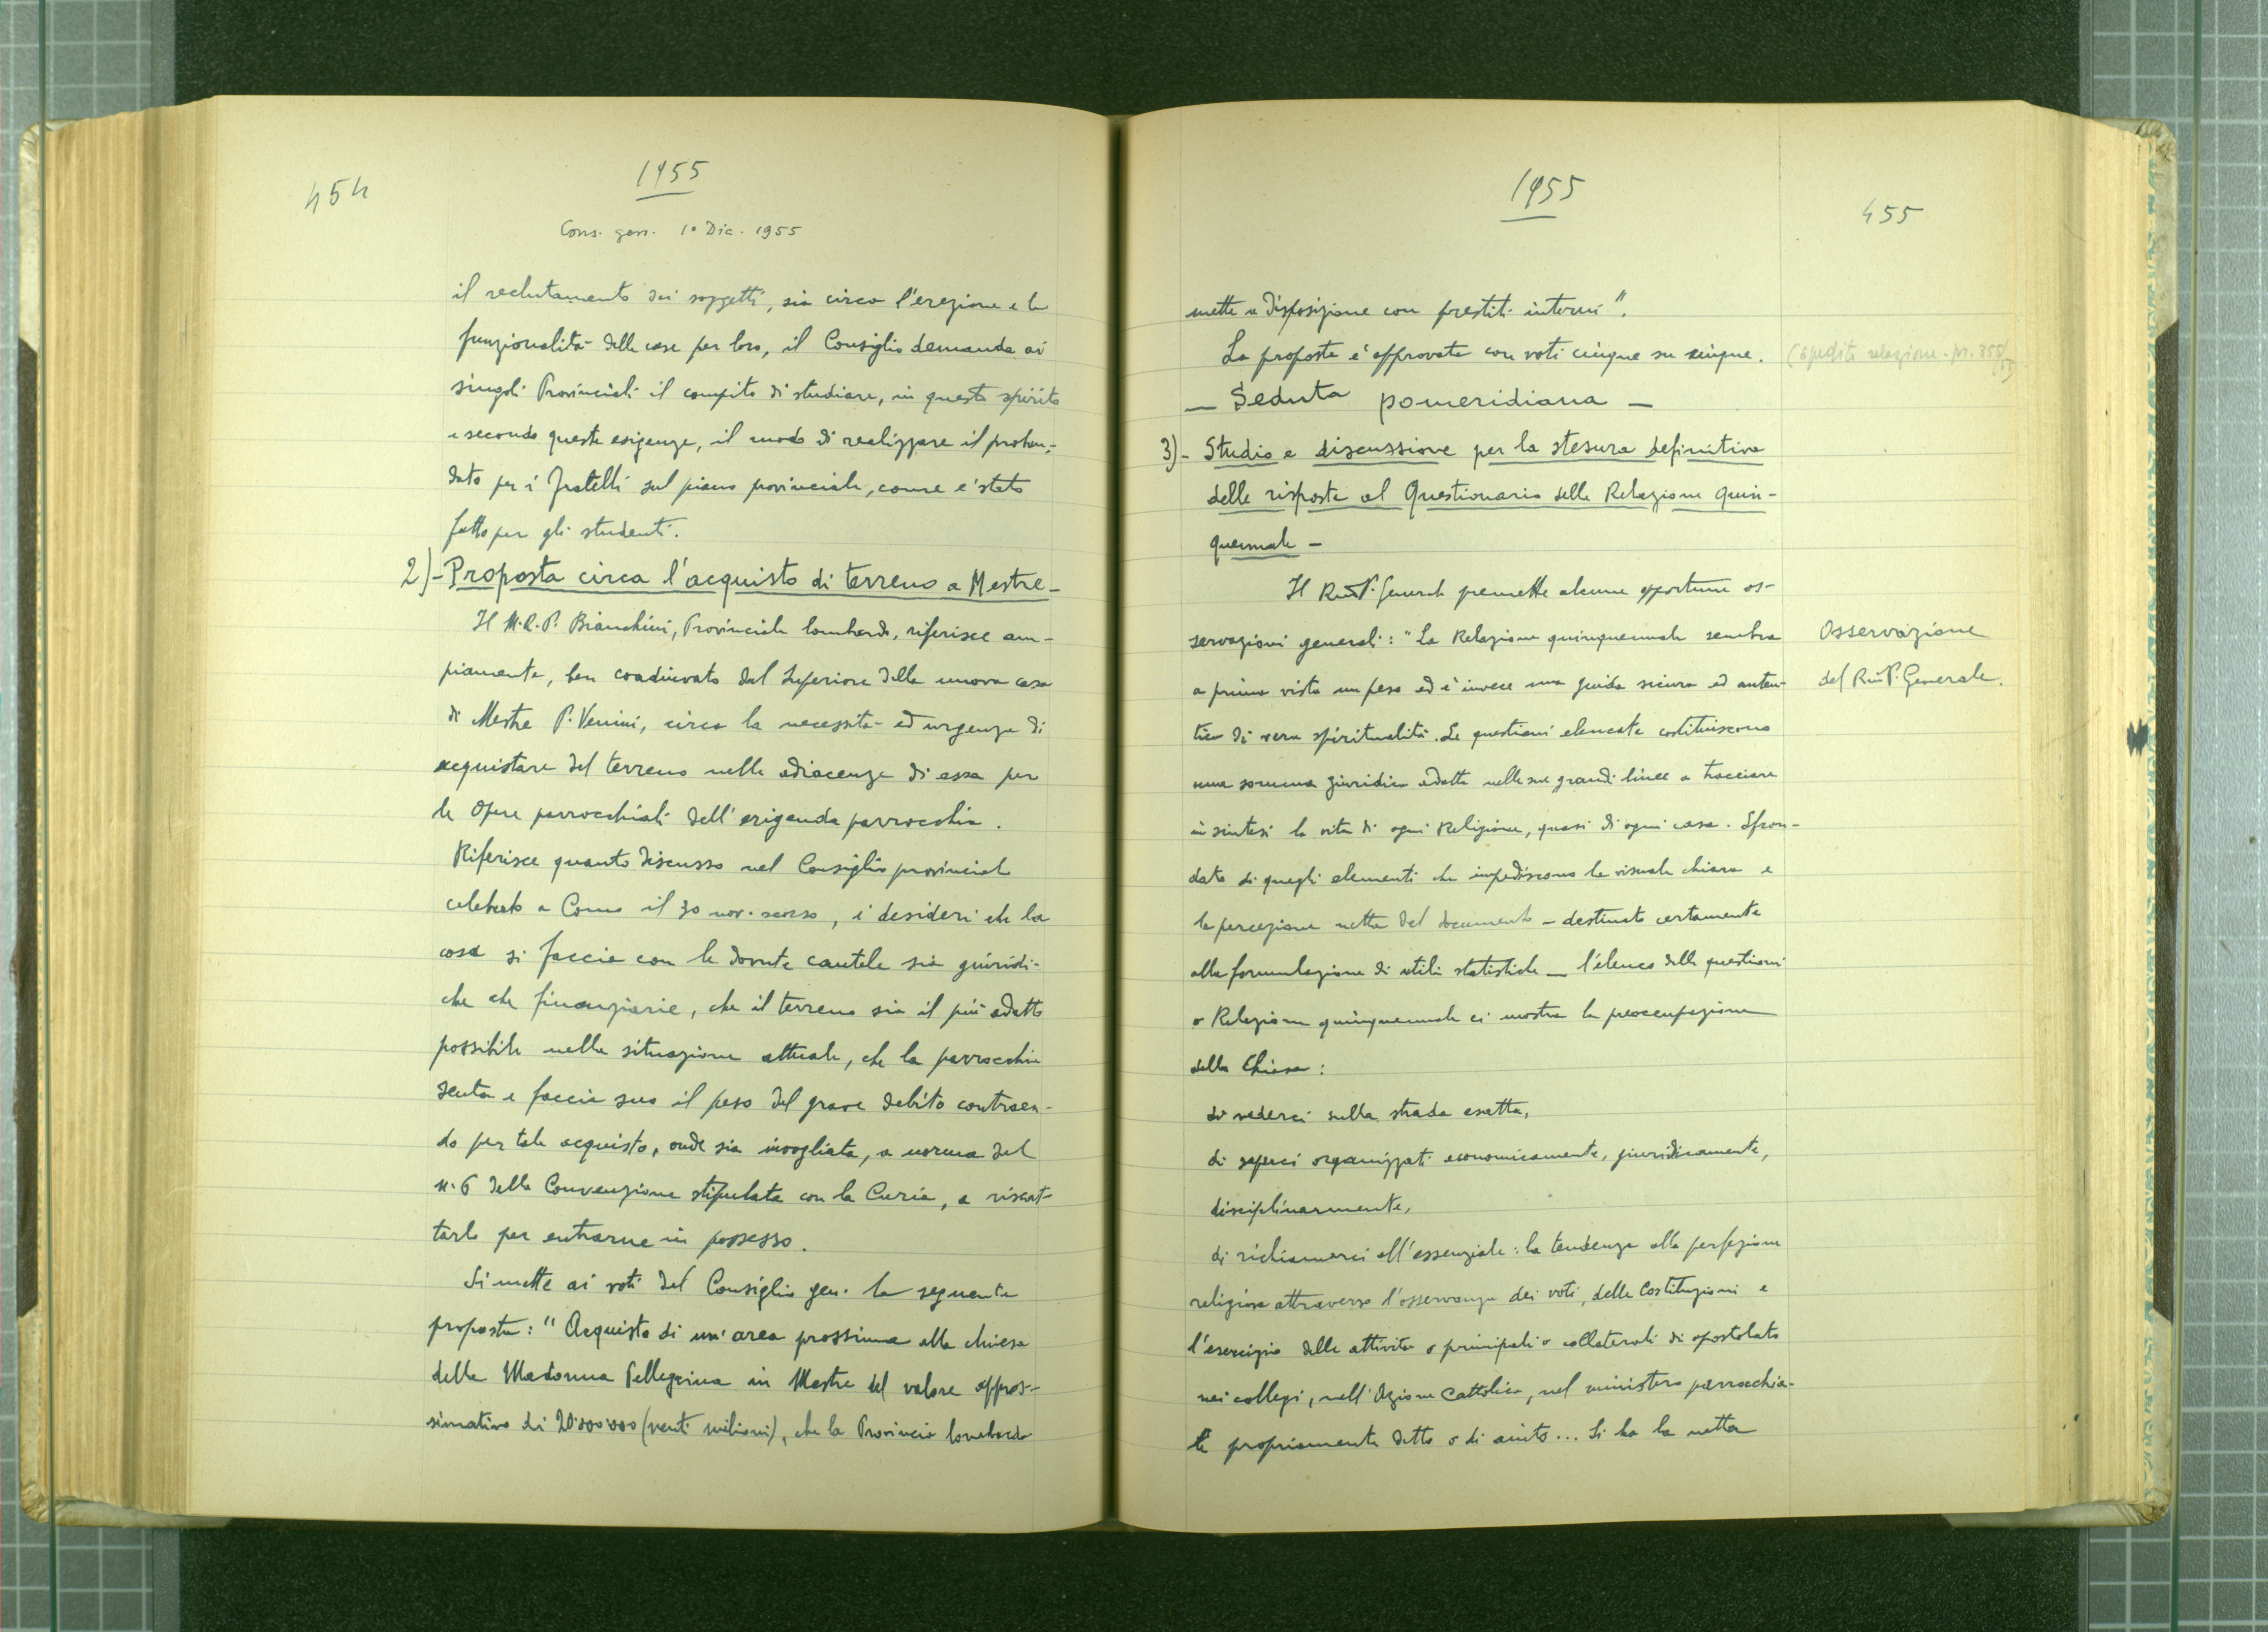 454
1955
Cons. gen. 1° Dic. 1955
il reclutamento dei soggetti, sia circa l'erezione e la
funzionalità delle case per loro, il Consiglio demanda ai
singoli Provinciali il compito di studiare, in questo spirito
e secondo queste esigenze, il modo di realizzare il proban-
dato per i Fratelli sul piano provinciale, come è stato
fatto per gli studenti.
2)- Proposta circa l'acquisto di terreno a Mestre -
Il M.R.P. Bianchini, Provinciale lombardo, riferisce am-
piamente, ben coadiuvato dal Superiore della nuova casa
di Mestre P. Venini, circa la necessità ed urgenza di
acquistare del terreno nelle adiacenze di essa per
le Opere parrocchiali dell'erigenda parrocchia.
Riferisce quanto discusso nel Consiglio provinciale
celebrato a Como il 30 nov. scorso, i desideri che la
cosa si faccia con le dovute cautele sia giuridi-
che che finanziarie, che il terreno sia il più adatto
possibile nella situazione attuale, che la parrocchia
senta e faccia suo il peso del grave debito contraen-
do per tale acquisto, onde sia invogliata, a norma del
n. 6 della Convenzione stipulata con la Curia, a riscat-
tarlo per entrarne in possesso.
Si mette ai voti del Consiglio gen. la seguente
proposta: "Acquisto di un'area prossima alla chiesa
della Madonna Pellegrina in Mestre del valore appros-
simativo di 20.000.000 (venti milioni), che la Provincia lombarda
1955
455
mette a disposizione con prestiti interni".
La proposta è approvata con voti cinque su cinque.
(spedita relazione - pr. 355/55)
— Seduta pomeridiana —
3)- Studio e discussione per la stesura definitiva
delle risposte al Questionario della Relazione quin-
quennale -
Il Rev.mo P. Generale premette alcune opportune os-
servazioni generali: "La Relazione quinquennale sembra
Osservazione
a prima vista un peso ed è invece una guida sicura ed auten-
del Rev.mo P. Generale.
tica di vera spiritualità. Le questioni elencate costituiscono
una somma giuridica adatta nelle sue grandi linee a tracciare
in sintesi la vita di ogni Religione, quasi di ogni casa. Sfron-
dato di quegli elementi che impediscono la visuale chiara e
la percezione netta del documento – destinato certamente
alla formulazione di utili statistiche — l'elenco delle questioni
o Relazione quinquennale ci mostra la preoccupazione
della Chiesa:
di vederci sulla strada esatta,
di saperci organizzati economicamente, giuridicamente,
disciplinarmente,
di richiamarci all'essenziale: la tendenza alla perfezione
religiosa attraverso l'osservanza dei voti, delle Costituzioni e
l'esercizio delle attività o principali o collaterali di apostolato
nei collegi, nell'Azione Cattolica, nel ministero parrocchia-
le propriamente detto o di aiuto... Si ha la netta